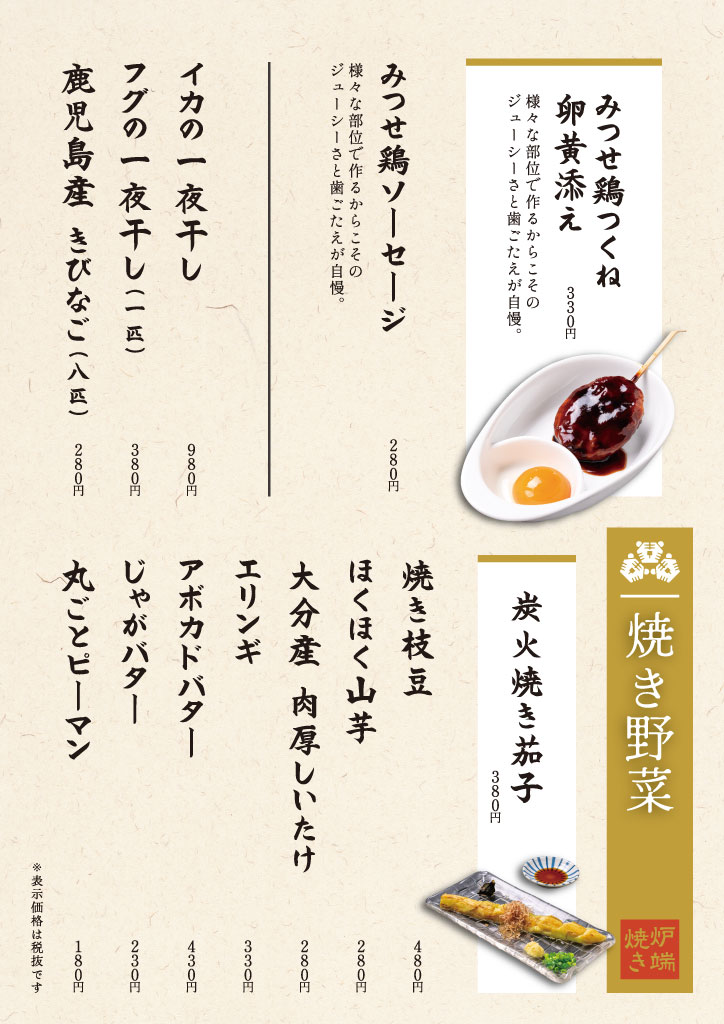 みつせ鶏つくね
卵黄添え
330円
様々な部位で作るからこその
ジューシーさと歯ごたえが自慢。
みつせ鶏ソーセージ
280円
様々な部位で作るからこその
ジューシーさと歯ごたえが自慢。
イカの一夜干し
980円
フグの一夜干し（一匹）
380円
鹿児島産 きびなご（八匹）
280円
焼き野菜
炉端
焼き
炭火焼き茄子
380円
焼き枝豆
480円
ほくほく山芋
280円
大分産 肉厚しいたけ
280円
エリンギ
330円
アボカドバター
430円
じゃがバター
230円
丸ごとピーマン
180円
※表示価格は税抜です